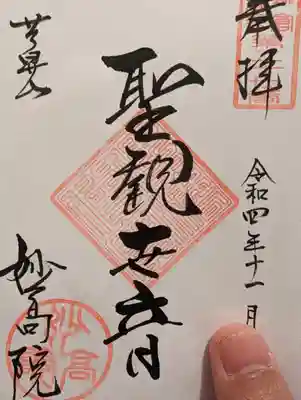 奉拝
令和四年十一月
聖観世音
妙高院